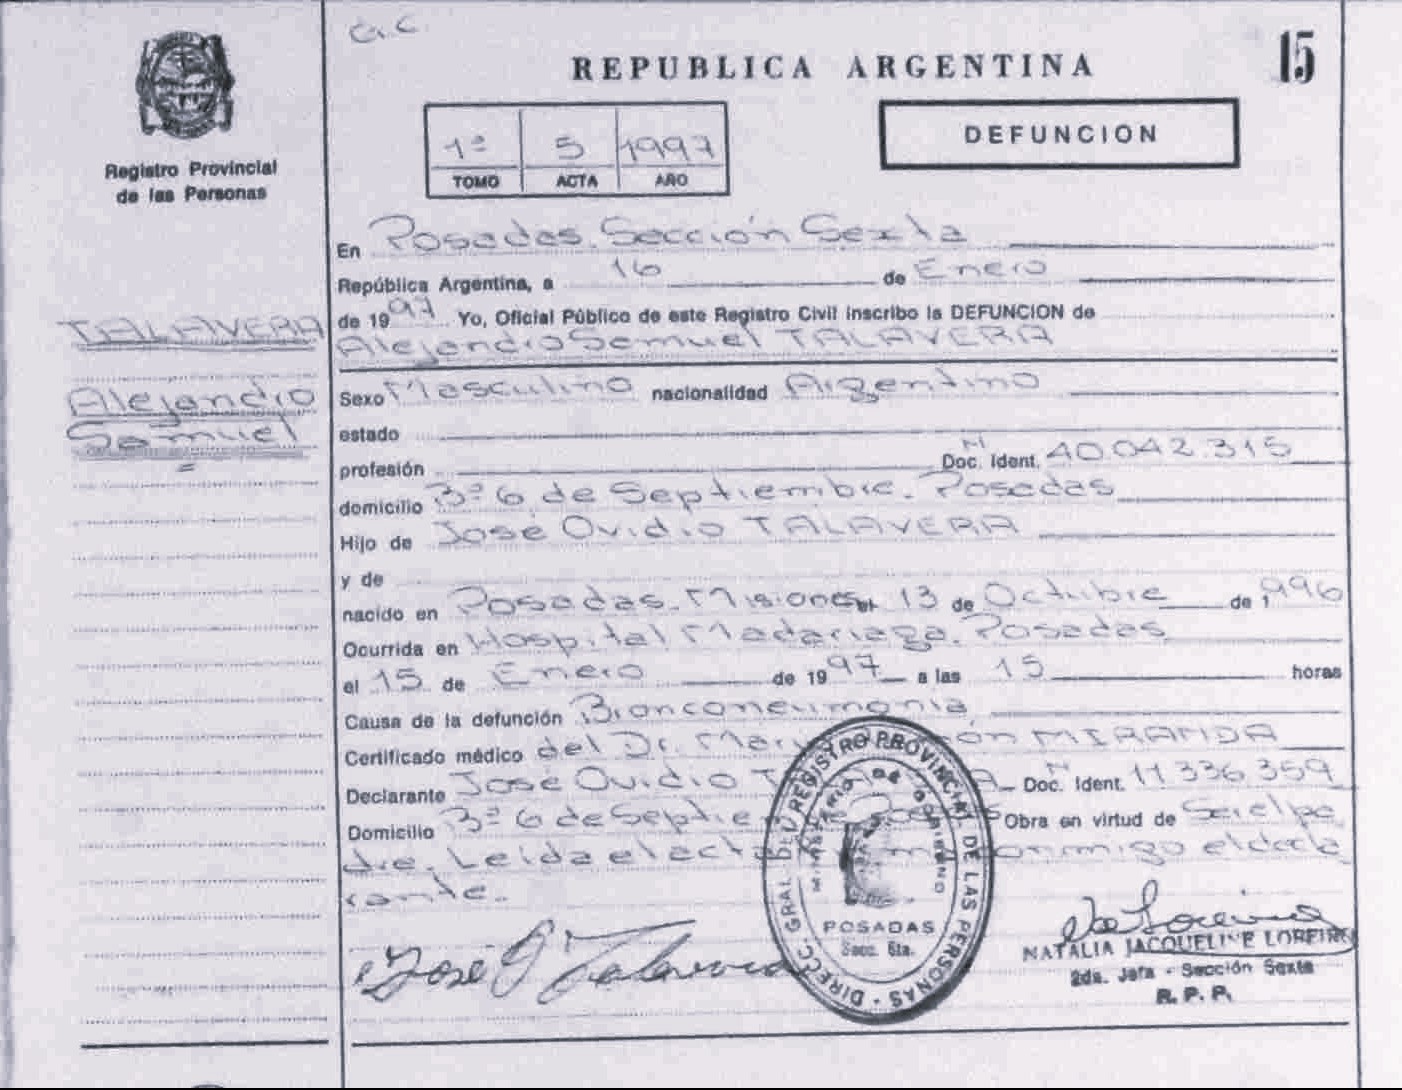 G.C
15
REPUBLICA ARGENTINA
DEFUNCION
1º 5 1997
TOMO ACTA AÑO
Registro Provincial
de las Personas
TALAVERA
Alejandro
Samuel
En Posadas. Sección Sexta
República Argentina, a 16 de Enero
de 1997 Yo, Oficial Público de este Registro Civil inscribo la DEFUNCION de
Alejandro Samuel TALAVERA
Sexo Masculino nacionalidad Argentino
estado
profesión Doc. Ident. 40.042.315
domicilio Bº 6 de Septiembre. Posadas
Hijo de José Ovidio TALAVERA
y de
nacido en Posadas. Misiones el 13 de Octubre de 1996
Ocurrida en Hospital Madariaga. Posadas
el 15 de Enero de 1997 a las 15 horas
Causa de la defunción Bronconeumonia
Certificado médico del Dr. MIRANDA
Declarante José Ovidio Doc. Ident. 11.336.359
Domicilio Bº 6 de Septie Obra en virtud de Ser el pa
dre. Leida el acta conmigo el decla
rante.
José O Talavera
DIRECC. GRAL. DEL REGISTRO PROVINCIAL DE LAS PERSONAS
MINISTERIO DE GOBIERNO
POSADAS
Secc. 6ta.
NATALIA JACQUELINE LOREIRO
2da. Jefa - Sección Sexta
R. P. P.